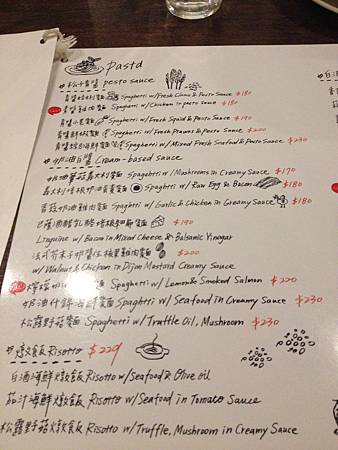 Pasta
#松子青醬 pesto sauce
青醬蛤蜊麵 Spaghetti w/Fresh Clams & Pesto Sauce $180
青醬雞肉麵 Spaghetti w/Chicken in pesto Sauce $180
青醬小卷麵 Spaghetti w/Fresh Squid & Pesto Sauce $190
青醬鮮蝦麵 Spaghetti w/Fresh Prawns & Pesto Sauce $200
青醬綜合海鮮麵 Spaghetti w/Mixed Fresh Seafood & Pesto Sauce $230
#奶油白醬 Cream-based sauce
Spaghetti w/Mushrooms in Creamy Sauce $170
Spaghetti w/ Raw Egg & Bacon $180
奶油雞肉麵 Spaghetti w/Garlic & Chicken in Creamy Sauce $180
$190
Linguine w/Bacon in Mixed Cheese & Balsamic Vinegar
$200
w/Walnut & Chicken in Dijon Mustard Creamy Sauce
Spaghetti w/ Lemon & Smoked Salmon $220
#奶油什錦海鮮麵 Spaghetti w/ Seafood in Creamy Sauce $230
松露野菇麵 Spaghetti w/Truffle Oil, Mushroom $230
#燉飯 Risotto $229
白酒海鮮燉飯 Risotto w/Seafood & Olive oil
茄汁海鮮燉飯 Risotto w/Seafood in Tomato Sauce
松露野菇燉飯 Risotto w/Truffle, Mushroom in Creamy Sauce